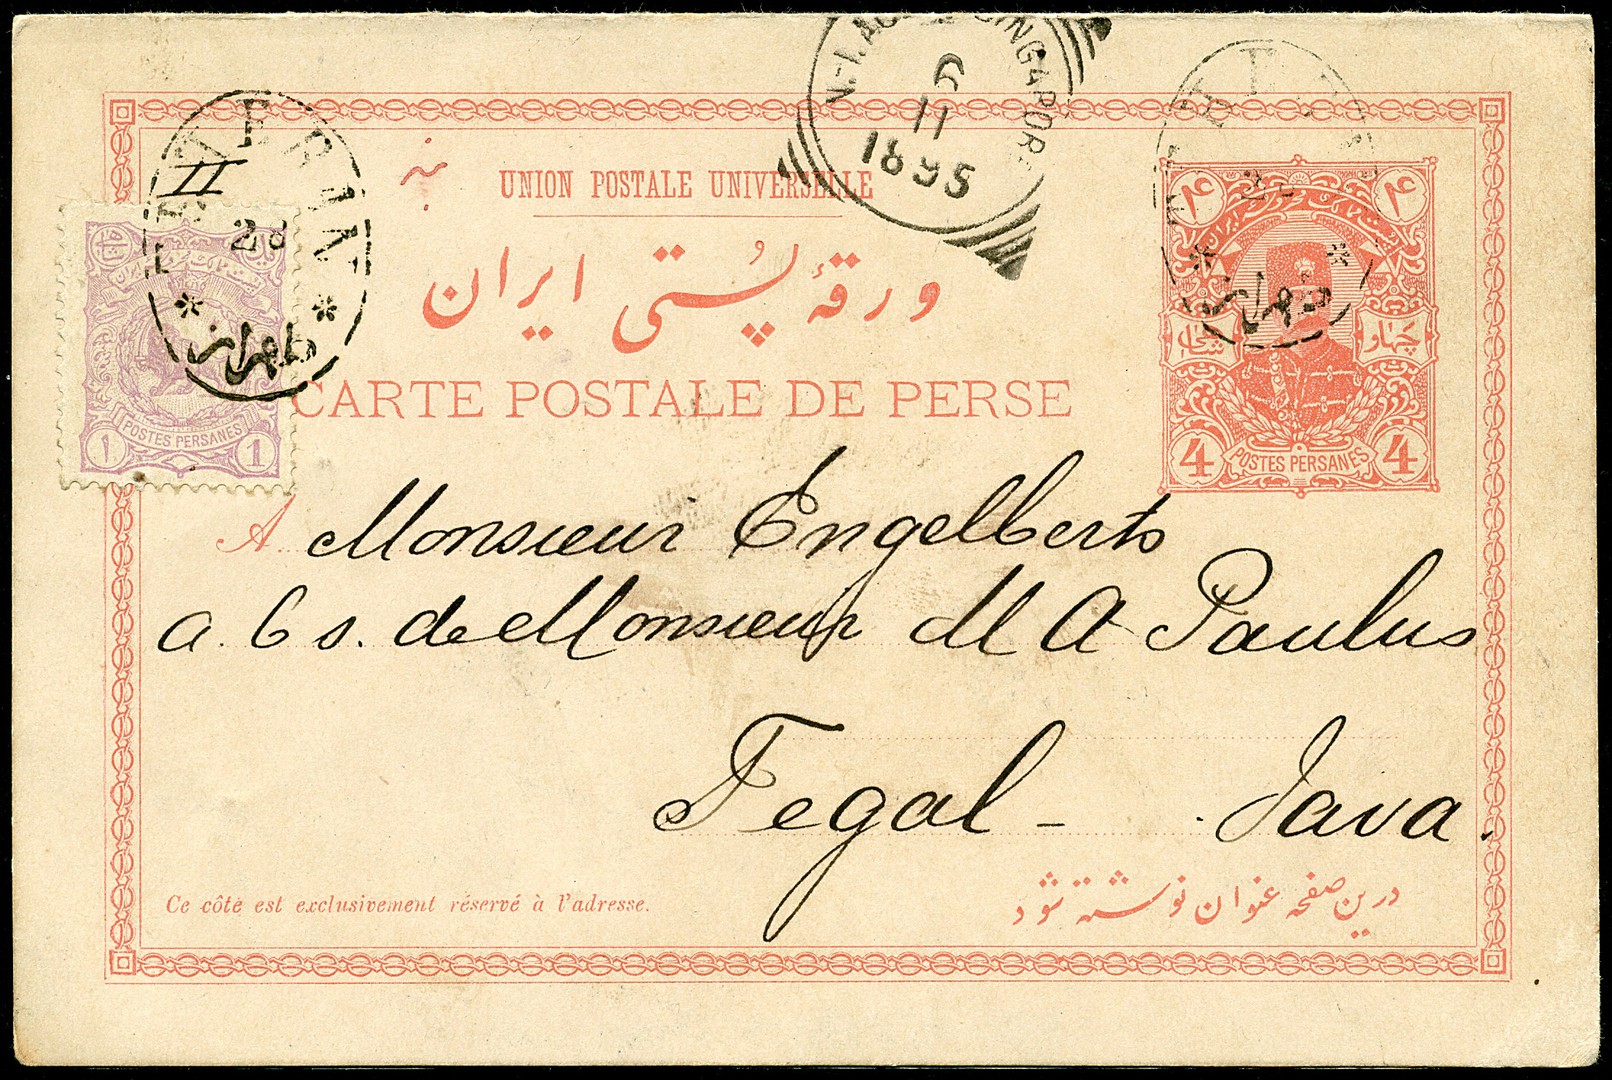 N.-I. AGENT SINGAPORE
6
11
1895
TEHERAN
II
28
طهران
TEHERAN
طهران
UNION POSTALE UNIVERSELLE
ورقهٔ پُستی ایران
CARTE POSTALE DE PERSE
۱
POSTES PERSANES
1
۴
۴
شاهی
چهار
4
POSTES PERSANES
4
A Monsieur Engelberts
a. b s. de Monsieur M A Paulus
Tegal - Java.
Ce côté est exclusivement réservé à l'adresse.
درین صفحه عنوان نوشته شود